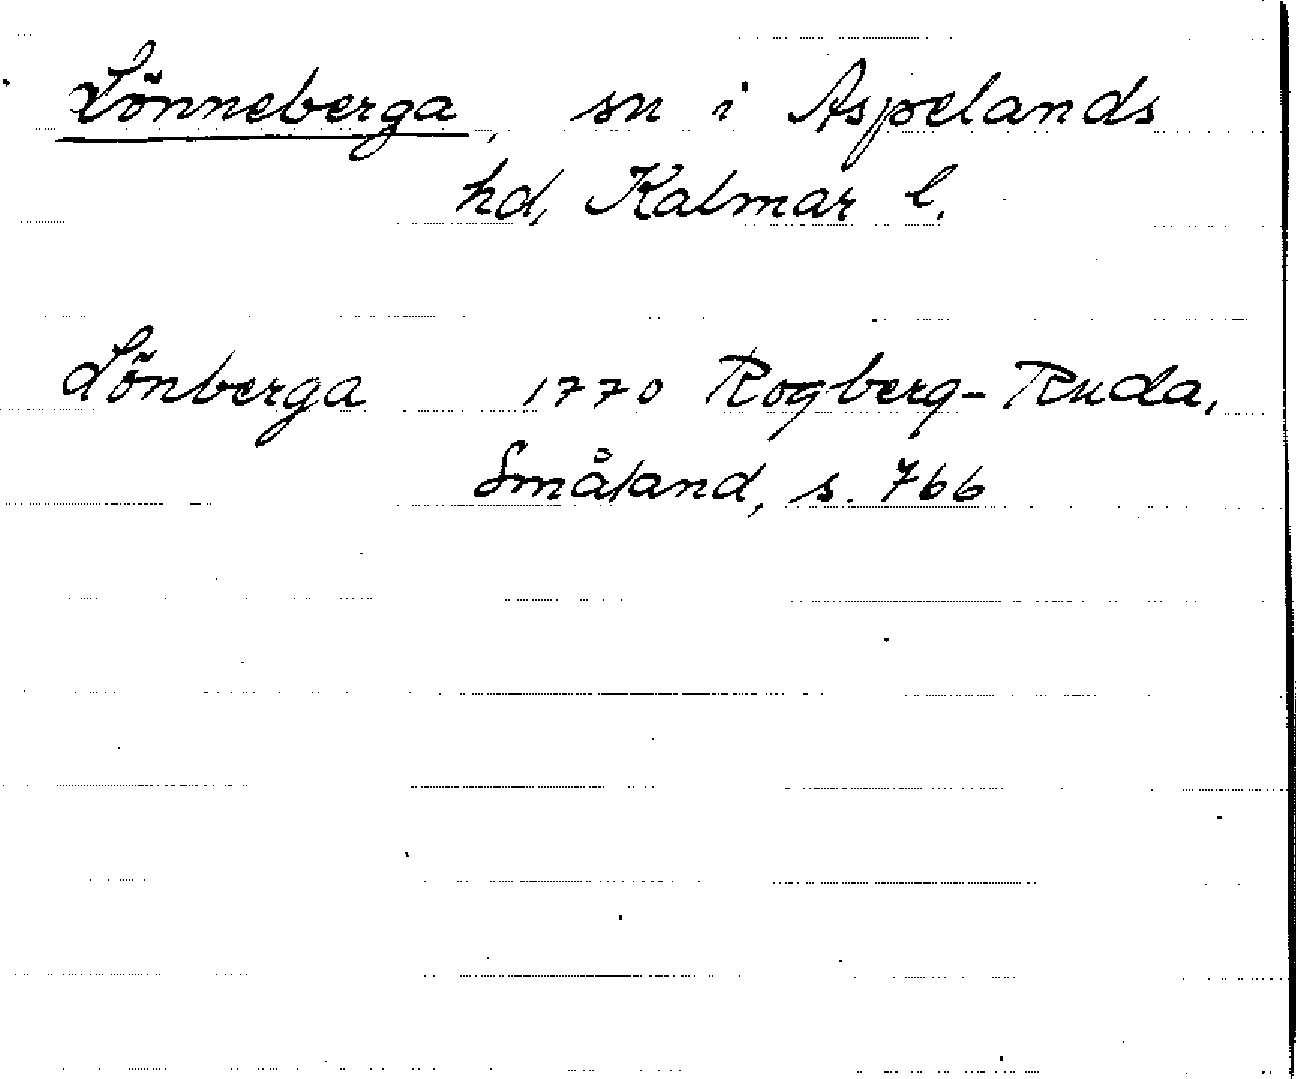 Lönneberga, sn i Aspelands
hd, Kalmar l.
Lönberga 1770 Rogberg-Ruda,
Småland, s. 766